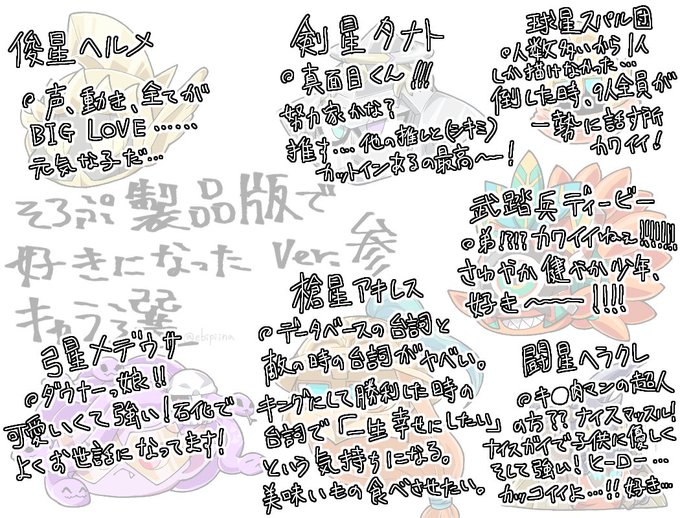 俊星ヘルメ
◎声、動き、全てが
BIG LOVE……
元気な子だ…
剣星タナト
◎真面目くん!!!
努力家かな?
推す…他の推しと(シキミ)
カットインあるの最高〜!
球星スバル団
◎人数多いから1人
しか描けなかった…
倒した時、9人全員が
一勢に話す所
カワイイ!
そろぷ製品版で
好きになった Ver.参
キャラ選
@ebipiina
武踏兵ディービー
◎弟!?!? カワイイねェ!!!!!!!
さわやか健やか少年、
好き〜〜!!!!
弓星メデウサ
◎ダウナーっ娘!!
可愛いくて強い!石化で
よくお世話になってます!
槍星アキレス
◎データベースの台詞と
敵の時の台詞がヤバい。
キングにして勝利した時の
台詞で「一生幸せにしたい」
という気持ちになる。
美味いもの食べさせたい。
闘星ヘラクレ
◎キ〇肉マンの超人
の方?? ナイスマッスル!
ナイスガイで子供に優しく
そして強い!ヒーロー…
カッコイイよ…!! 好き…